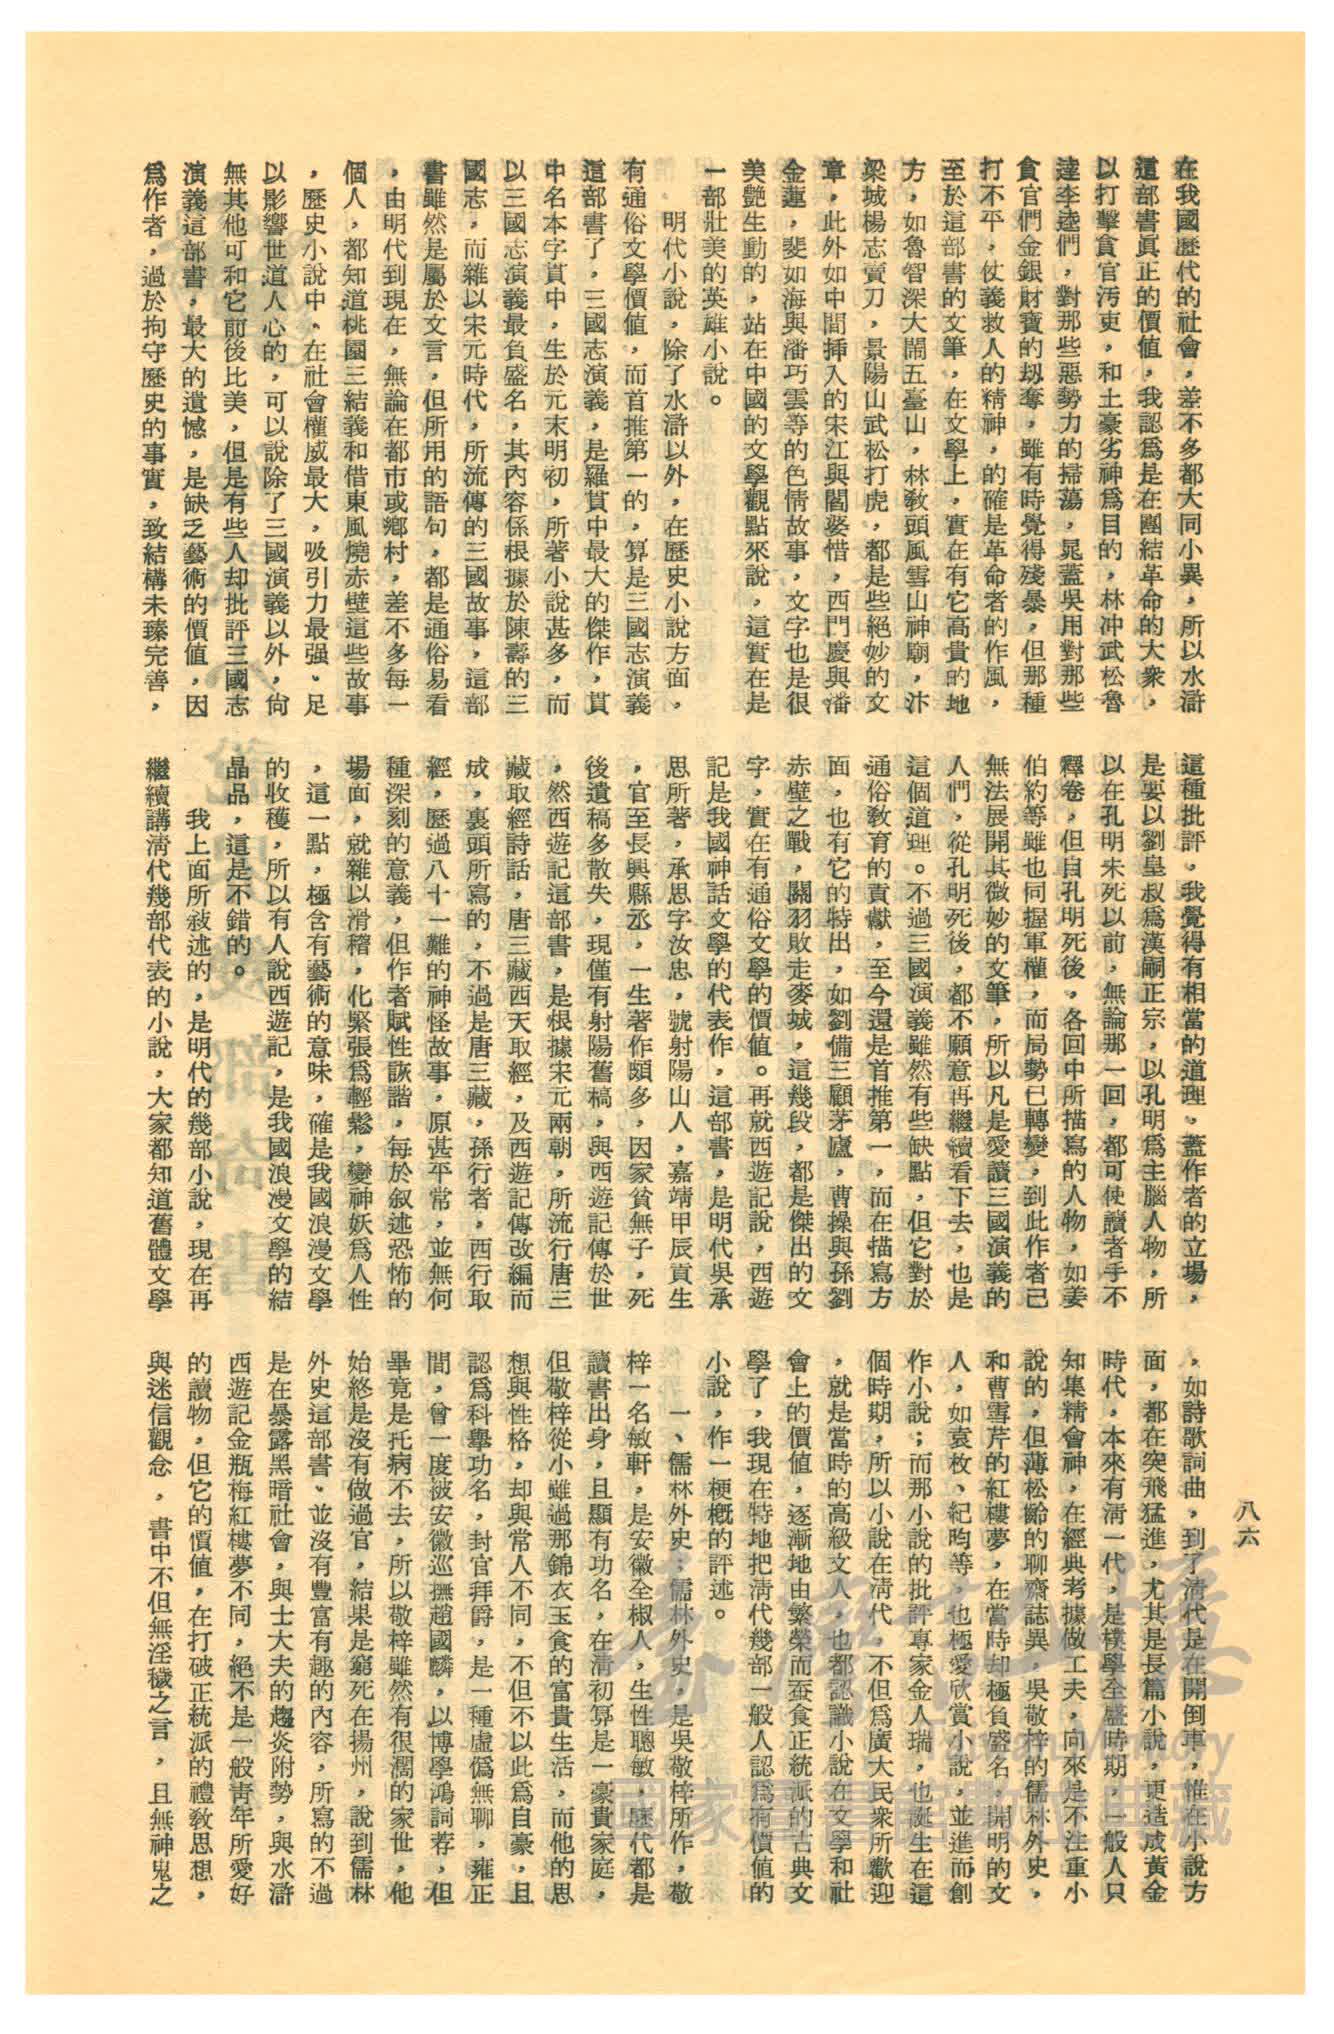 八六
在我國歷代的社會，差不多都大同小異，所以水滸
這部書眞正的價値，我認爲是在團結革命的大衆，
以打擊貪官汚吏，和土豪劣神爲目的，林冲武松魯
達李逵們，對那些惡勢力的掃蕩，晁蓋吳用對那些
貪官們金銀財寶的刼奪，雖有時覺得殘暴，但那種
打不平，仗義救人的精神，的確是革命者的作風，
至於這部書的文筆，在文學上，實在有它高貴的地
方，如魯智深大鬧五臺山，林敎頭風雪山神廟，汴
梁城楊志賣刀，景陽山武松打虎，都是些絕妙的文
章，此外如中間挿入的宋江與閻婆惜，西門慶與潘
金蓮，斐如海與潘巧雲等的色情故事，文字也是很
美艷生動的，站在中國的文學觀點來說，這實在是
一部壯美的英雄小說。
明代小說，除了水滸以外，在歷史小說方面，
有通俗文學價値，而首推第一的，算是三國志演義
這部書了，三國志演義，是羅貫中最大的傑作，貫
中名本字貫中，生於元末明初，所著小說甚多，而
以三國志演義最負盛名，其內容係根據於陳壽的三
國志，而雜以宋元時代，所流傳的三國故事，這部
書雖然是屬於文言，但所用的語句，都是通俗易看
，由明代到現在，無論在都市或鄕村，差不多每一
個人，都知道桃園三結義和借東風燒赤壁這些故事
，歷史小說中、在社會權威最大，吸引力最强、足
以影響世道人心的，可以說除了三國演義以外，尙
無其他可和它前後比美，但是有些人却批評三國志
演義這部書，最大的遺憾，是缺乏藝術的價値，因
爲作者，過於拘守歷史的事實，致結構未臻完善，
這種批評，我覺得有相當的道理，蓋作者的立場，
是要以劉皇叔爲漢嗣正宗，以孔明爲主腦人物，所
以在孔明未死以前，無論那一回，都可使讀者手不
釋卷，但自孔明死後，各回中所描寫的人物，如姜
伯約等雖也同握軍權，而局勢已轉變，到此作者已
無法展開其微妙的文筆，所以凡是愛讀三國演義的
人們，從孔明死後，都不願意再繼續看下去，也是
這個道理。不過三國演義雖然有些缺點，但它對於
通俗敎育的貢獻，至今還是首推第一，而在描寫方
面，也有它的特出，如劉備三顧茅廬，曹操與孫劉
赤壁之戰，關羽敗走麥城，這幾段，都是傑出的文
字，實在有通俗文學的價値。再就西遊記說，西遊
記是我國神話文學的代表作，這部書，是明代吳承
思所著，承思字汝忠，號射陽山人，嘉靖甲辰貢生
，官至長興縣丞，一生著作頗多，因家貧無子，死
後遺稿多散失，現僅有射陽舊稿，與西遊記傳於世
，然西遊記這部書，是根據宋元兩朝，所流行唐三
藏取經詩話，唐三藏西天取經，及西遊記傳改編而
成，裏頭所寫的，不過是唐三藏，孫行者，西行取
經，歷過八十一難的神怪故事，原甚平常，並無何
種深刻的意義，但作者賦性詼諧，每於叙述恐怖的
場面，就雜以滑稽，化緊張爲輕鬆，變神妖爲人性
，這一點，極含有藝術的意味，確是我國浪漫文學
的收穫，所以有人說西遊記，是我國浪漫文學的結
晶品，這是不錯的。
我上面所敍述的，是明代的幾部小說，現在再
繼續講淸代幾部代表的小說，大家都知道舊體文學
，如詩歌詞曲，到了淸代是在開倒車，惟在小說方
面，都在突飛猛進，尤其是長篇小說，更造成黃金
時代，本來有淸一代，是樸學全盛時期，一般人只
知集精會神，在經典考據做工夫，向來是不注重小
說的，但薄松齡的聊齋誌異，吳敬梓的儒林外史，
和曹雪芹的紅樓夢，在當時却極負盛名，開明的文
人，如袁枚、紀昀等，也極愛欣賞小說，並進而創
作小說；而那小說的批評專家金人瑞，也誕生在這
個時期，所以小說在淸代，不但爲廣大民衆所歡迎
，就是當時的高級文人，也都認識小說在文學和社
會上的價値，逐漸地由繁榮而蚕食正統派的古典文
學了，我現在特地把淸代幾部一般人認爲有價値的
小說，作一梗槪的評述。
一、儒林外史：儒林外史，是吳敬梓所作，敬
梓一名敏軒，是安徽全椒人，生性聰敏，歷代都是
讀書出身，且顯有功名，在淸初算是一豪貴家庭，
但敬梓從小雖過那錦衣玉食的富貴生活，而他的思
想與性格，却與常人不同，不但不以此爲自豪，且
認爲科擧功名，封官拜爵，是一種虛僞無聊，雍正
間，曾一度被安徽巡撫趙國麟，以博學鴻詞荐，但
畢竟是托病不去，所以敬梓雖然有很濶的家世，他
始終是沒有做過官，結果是窮死在揚州，說到儒林
外史這部書、並沒有豐富有趣的內容，所寫的不過
是在暴露黑暗社會，與士大夫的趨炎附勢，與水滸
西遊記金瓶梅紅樓夢不同，絕不是一般靑年所愛好
的讀物，但它的價値，在打破正統派的禮敎思想，
與迷信觀念，書中不但無淫穢之言，且無神鬼之
臺灣記憶
Taiwan Memory
國家圖書館數位典藏